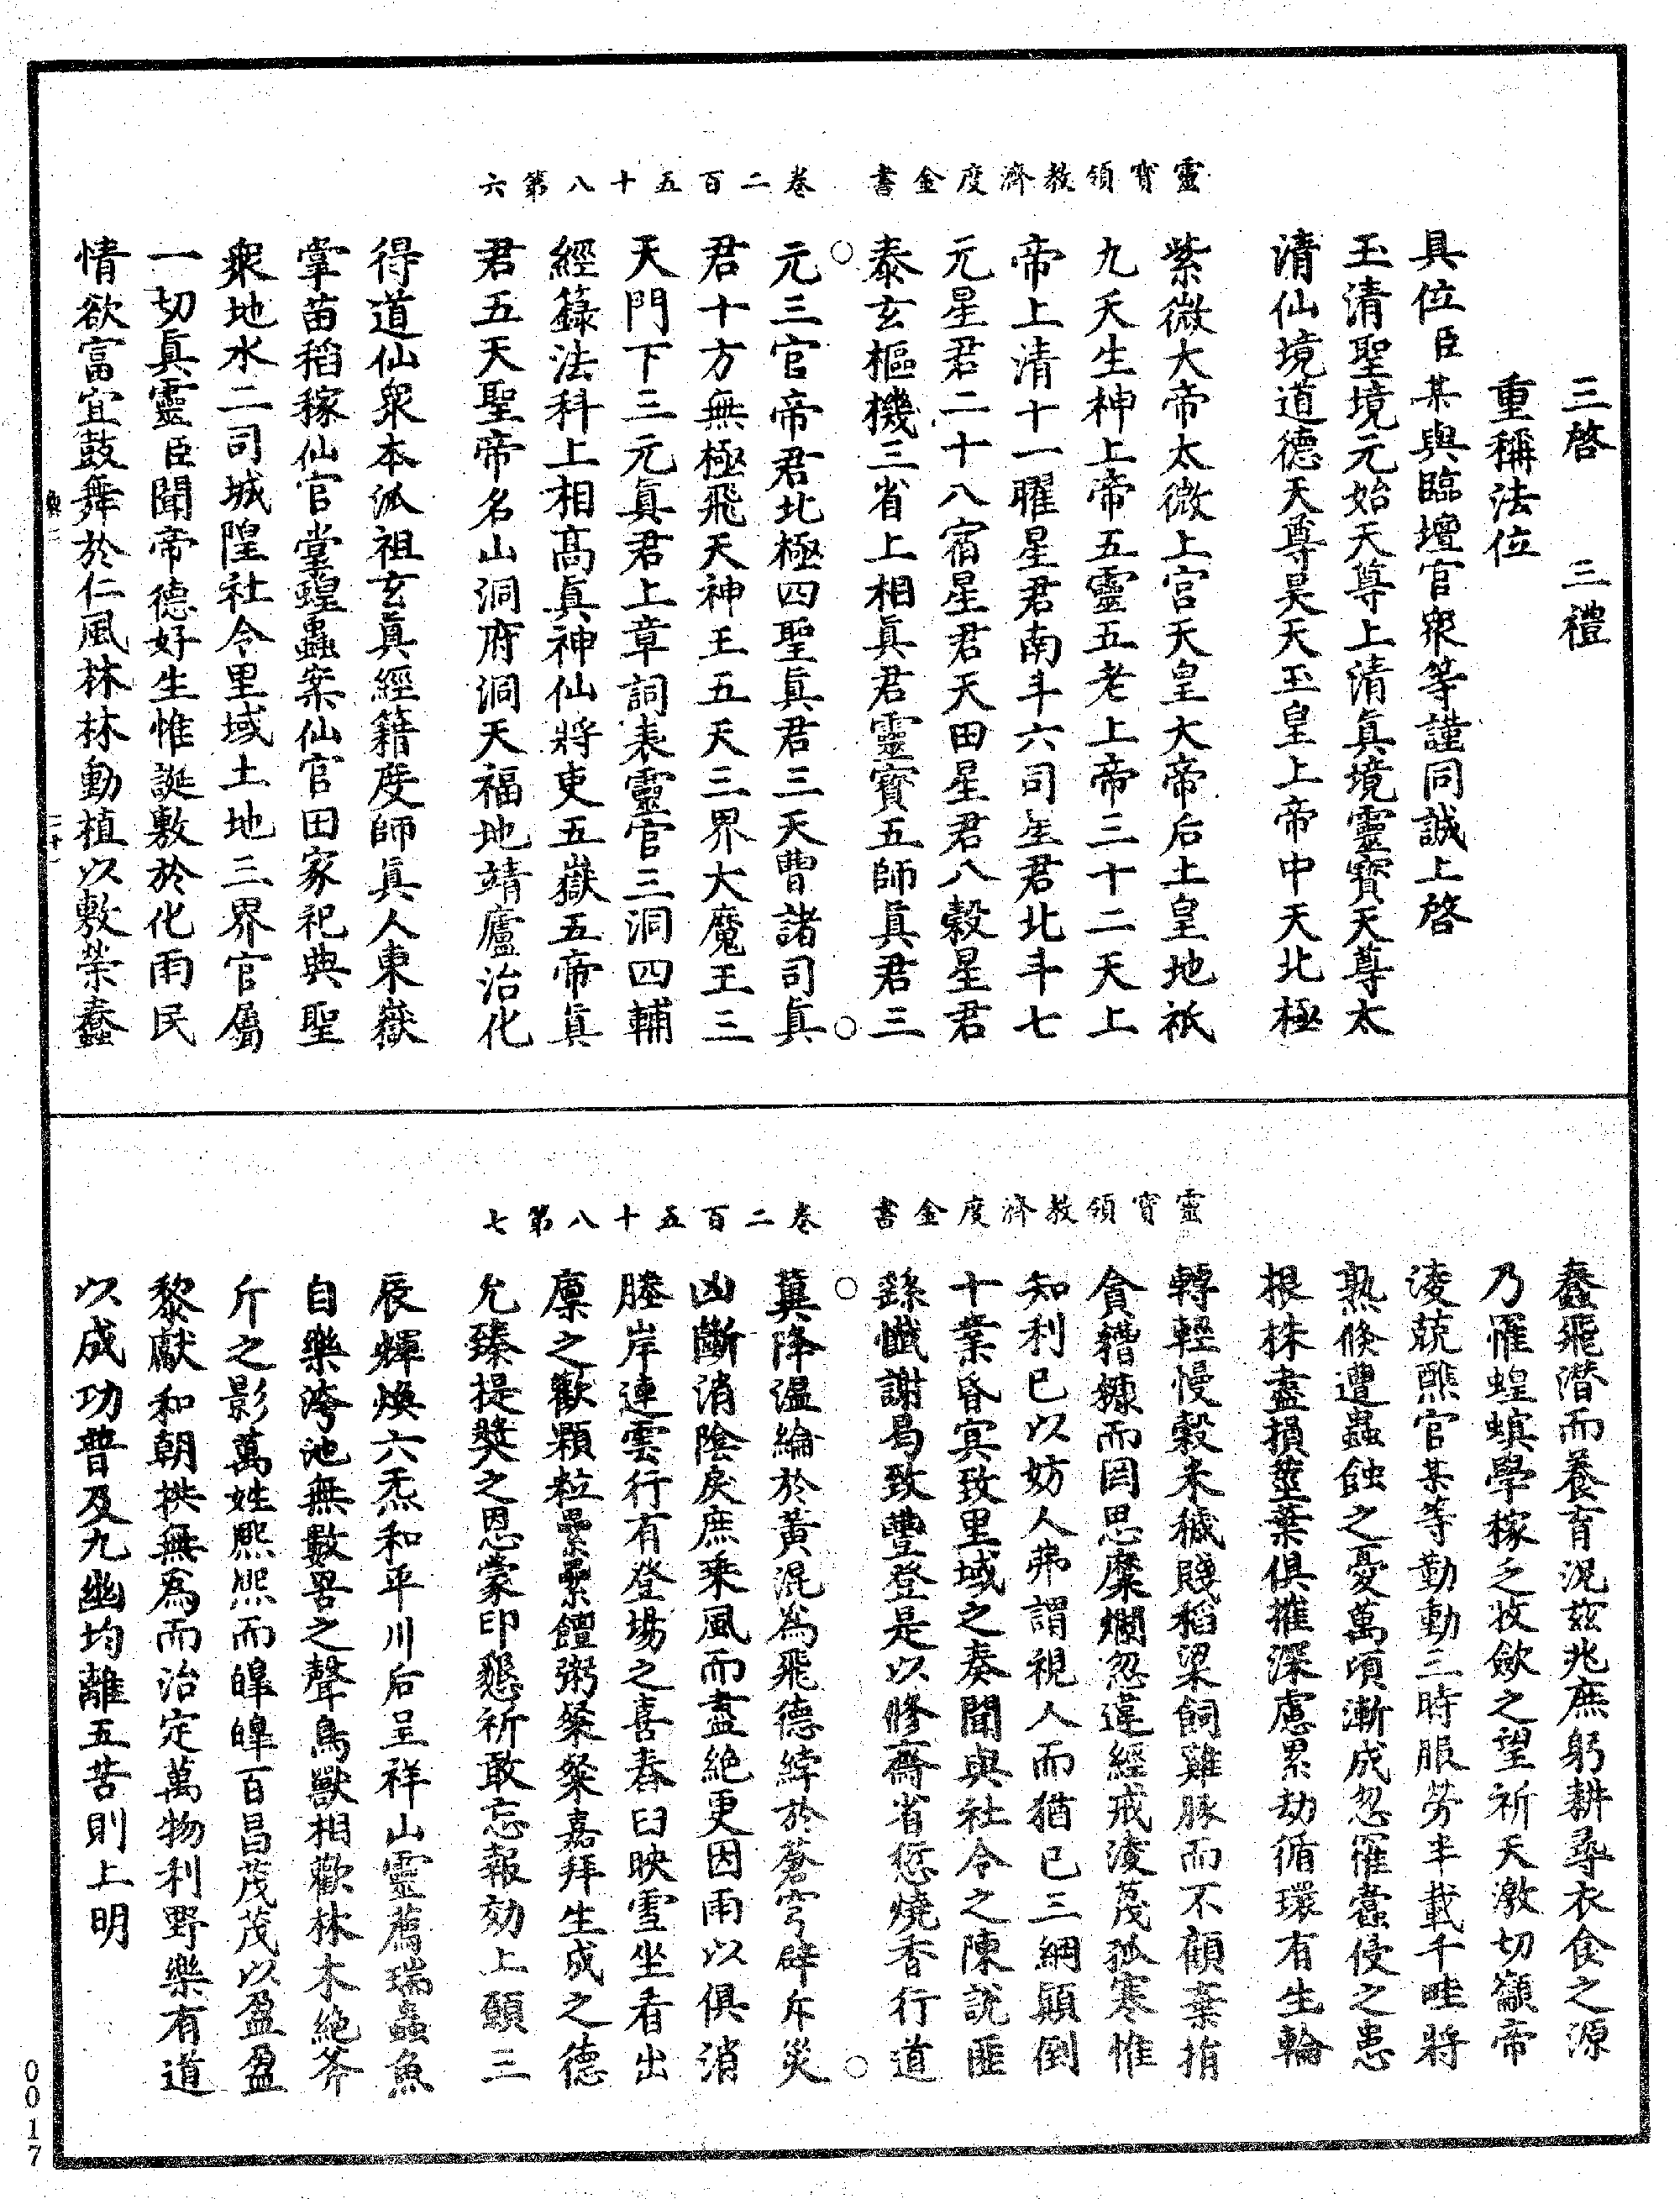 靈寶領教濟度金書　卷二百五十八第六
三啓　三禮
重稱法位
具位臣某與臨壇官衆等謹同誠上啓
玉清聖境元始天尊上清眞境靈寶天尊太
清仙境道德天尊昊天玉皇上帝中天北極
紫微大帝太微上宮天皇大帝后土皇地祇
九天生神上帝五靈五老上帝三十二天上
帝上清十一曜星君南斗六司星君北斗七
元星君二十八宿星君天田星君八穀星君
泰玄樞機三省上相眞君靈寶五師眞君三
元三官帝君北極四聖眞君三天曹諸司眞
君十方無極飛天神王五天三界大魔王三
天門下三元眞君上章詞表靈官三洞四輔
經籙法科上相高眞神仙將吏五嶽五帝眞
君五天聖帝名山洞府洞天福地靖廬治化
得道仙衆本派祖玄眞經籍度師眞人東嶽
掌苗稻稼仙官掌蝗蟲案仙官田家祀典聖
衆地水二司城隍社令里域土地三界官屬
一切眞靈臣聞帝德好生惟誕敷於化雨民
情欲富宜鼓舞於仁風林林動植以敷榮蠢
靈寶領教濟度金書　卷二百五十八第七
蠢飛潛而養育況茲兆庶躬耕尋衣食之源
乃罹蝗螟學稼乏收斂之望祈天激切籲帝
淩兢醮官某等勤動三時服勞半載千畦將
熟倏遭蟲蝕之憂萬頃漸成忽罹蠹侵之患
根株盡損莖葉俱摧深慮累劫循環有生輪
轉輕慢穀米穢賤稻粱飼雞豚而不顧棄捐
貪糟糠而罔思糜爛忽違經戒淩蔑孤寒惟
知利己以妨人弗謂視人而猶己三綱顚倒
十業昏冥致里域之奏聞與社令之陳說匪
繇懺謝曷致豐登是以修齋省愆燒香行道
冀降溫綸於黃混爲飛德綍於蒼穹辟斥災
凶斷消陰戾庶乘風而盡絶更因雨以俱消
塍岸連雲行有登場之喜舂臼映雪坐看出
廩之歡顆粒纍纍饘粥粲粲嘉拜生成之德
允臻提奬之恩蒙印懇祈敢忘報効上願三
辰輝煥六炁和平川后呈祥山靈薦瑞蟲魚
自樂洿池無數罟之聲鳥獸相歡林木絶斧
斤之影萬姓熙熙而皥皥百昌茂茂以盈盈
黎獻和朝拱無爲而治定萬物利野樂有道
以成功普及九幽均離五苦則上明
0017